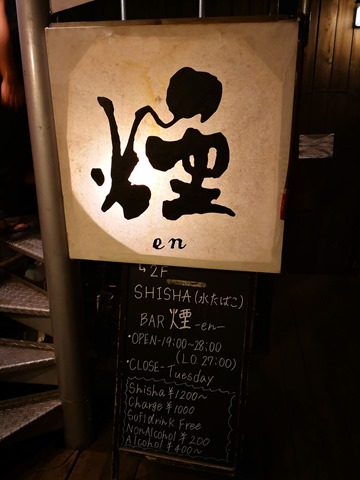 煙
en
↳2F
SHISHA(水たばこ)
BAR 煙 -en-
・OPEN-19:00~28:00
(L.O. 27:00)
・CLOSE-Tuesday
Shisha ¥1200~
Charge ¥1000
Sufidrink Free
NonAlcohol ¥200
Alcohol ¥400~